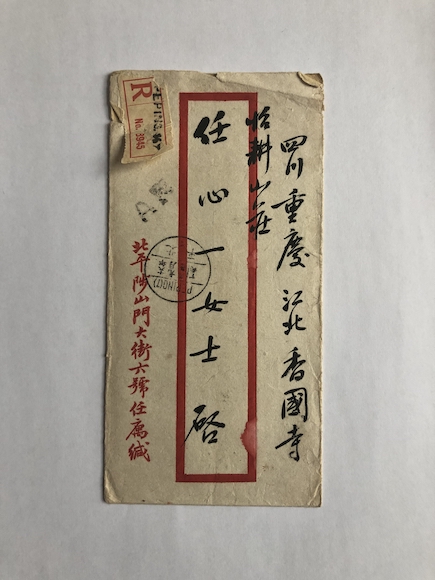 四川重慶江北香國寺
怡耕山莊
任心一女士啓
北平陟山門大街六號任寓緘
R
PEIPING
No. 3945
PEIPING(7)